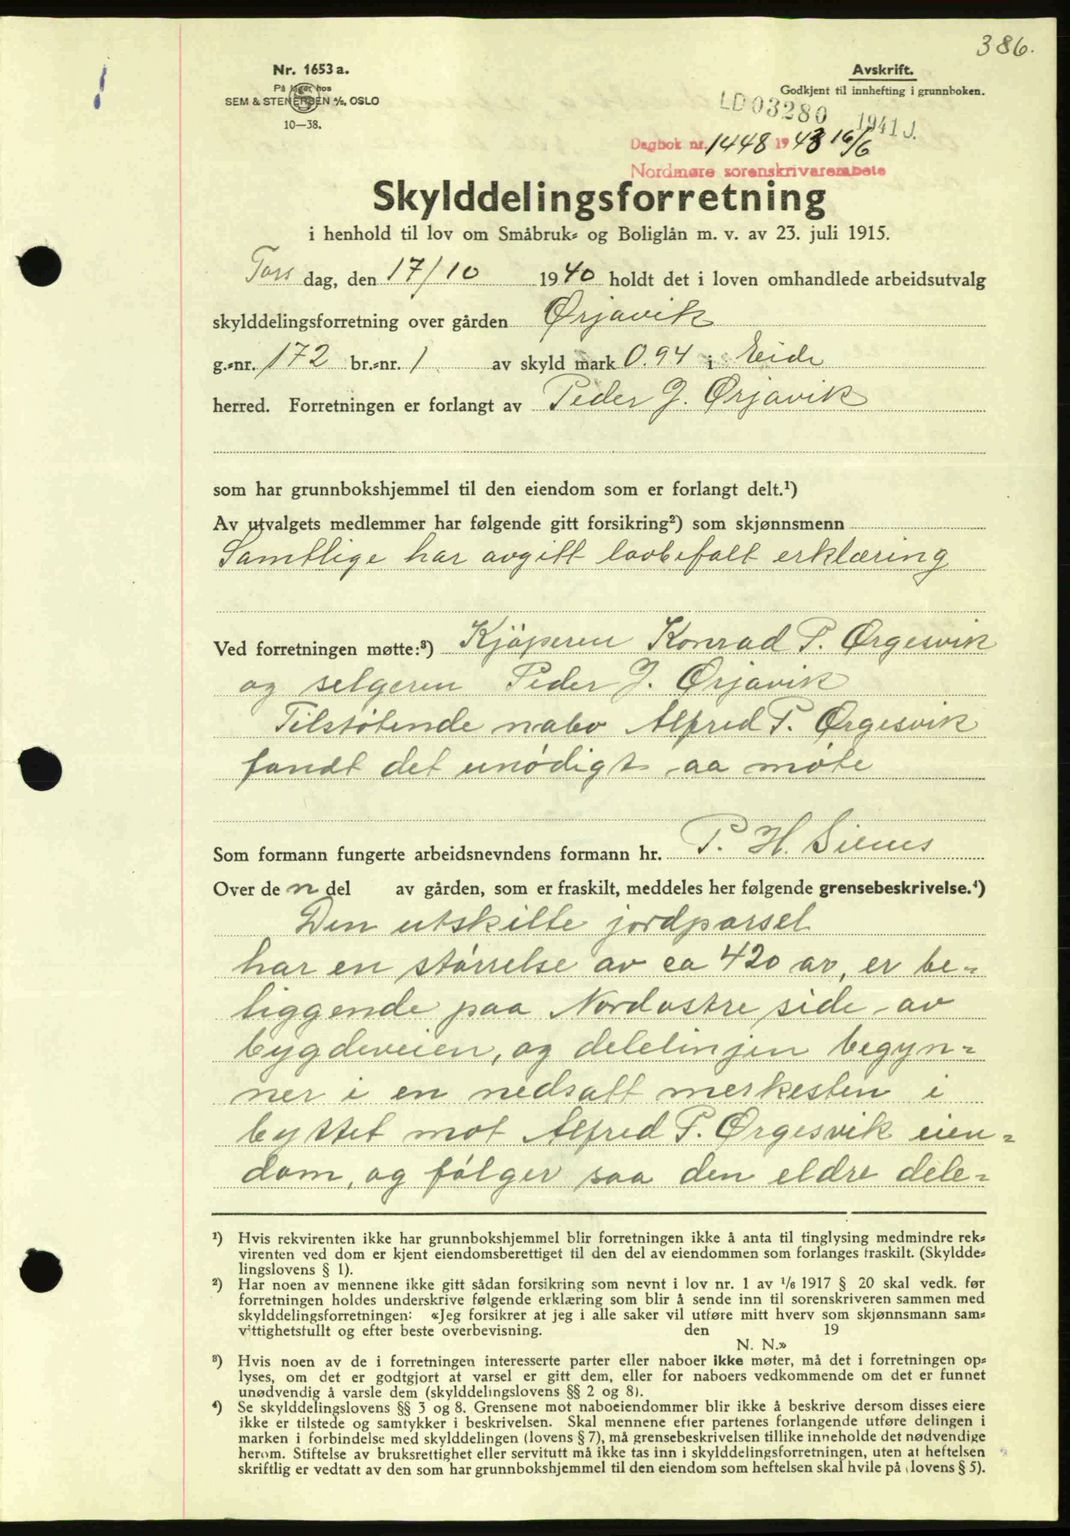 386.
Nr. 1653 a.
På lager hos
SEM & STENERSEN A/S, OSLO
10—38.
Avskrift.
Godkjent til innhefting i grunnboken.
LD 03280 1941 J.
Dagbok nr. 1448 1943 16/6
Nordmøre sorenskrivarembete
Skylddelingsforretning
i henhold til lov om Småbruk- og Boliglån m. v. av 23. juli 1915.
Tors dag, den 17/10 1940 holdt det i loven omhandlede arbeidsutvalg
skylddelingsforretning over gården Ørjavik
g.-nr. 172 br.-nr. 1 av skyld mark 0.94 i Eide
herred. Forretningen er forlangt av Peder J. Ørjavik
som har grunnbokshjemmel til den eiendom som er forlangt delt.¹)
Av utvalgets medlemmer har følgende gitt forsikring²) som skjønnsmenn
Samtlige har avgitt lovbefalt erklæring
Ved forretningen møtte:³) Kjøperen Konrad P. Ørgesvik
og selgeren Peder J. Ørjavik
Tilstøtende nabo Alfred P. Ørgesvik
fandt det unødigt aa møte
Som formann fungerte arbeidsnevndens formann hr. P. H. Silnes
Over de n del av gården, som er fraskilt, meddeles her følgende grensebeskrivelse.⁴)
Den utskilte jordparsel
har en størrelse av ca 420 ar, er be-
liggende paa Nordøstre side av
bygdeveien, og delelinjen begyn-
ner i en nedsatt merkesten i
byttet mot Alfred P. Ørgesvik eien-
dom, og følger saa den eldre dele-
¹) Hvis rekvirenten ikke har grunnbokshjemmel blir forretningen ikke å anta til tinglysing medmindre rek-
virenten ved dom er kjent eiendomsberettiget til den del av eiendommen som forlanges fraskilt. (Skyldde-
lingslovens § 1).
²) Har noen av mennene ikke gitt sådan forsikring som nevnt i lov nr. 1 av 1/6 1917 § 20 skal vedk. før
forretningen holdes underskrive følgende erklæring som blir å sende inn til sorenskriveren sammen med
skylddelingsforretningen: «Jeg forsikrer at jeg i alle saker vil utføre mitt hverv som skjønnsmann sam-
vittighetsfullt og efter beste overbevisning. den 19
N. N.»
³) Hvis noen av de i forretningen interesserte parter eller naboer ikke møter, må det i forretningen op-
lyses, om det er godtgjort at varsel er gitt dem, eller for naboers vedkommende om det er funnet
unødvendig å varsle dem (skylddelingslovens §§ 2 og 8).
⁴) Se skylddelingslovens §§ 3 og 8. Grensene mot naboeiendommer blir ikke å beskrive dersom disses eiere
ikke er tilstede og samtykker i beskrivelsen. Skal mennene efter partenes forlangende utføre delingen i
marken i forbindelse med skylddelingen (lovens § 7), må grensebeskrivelsen tillike inneholde det nødvendige
herom. Stiftelse av bruksrettighet eller servitutt må ikke tas inn i skylddelingsforretningen, uten at heftelsen
skriftlig er vedtatt av den som har grunnbokshjemmel til den eiendom som heftelsen skal hvile på (lovens § 5).